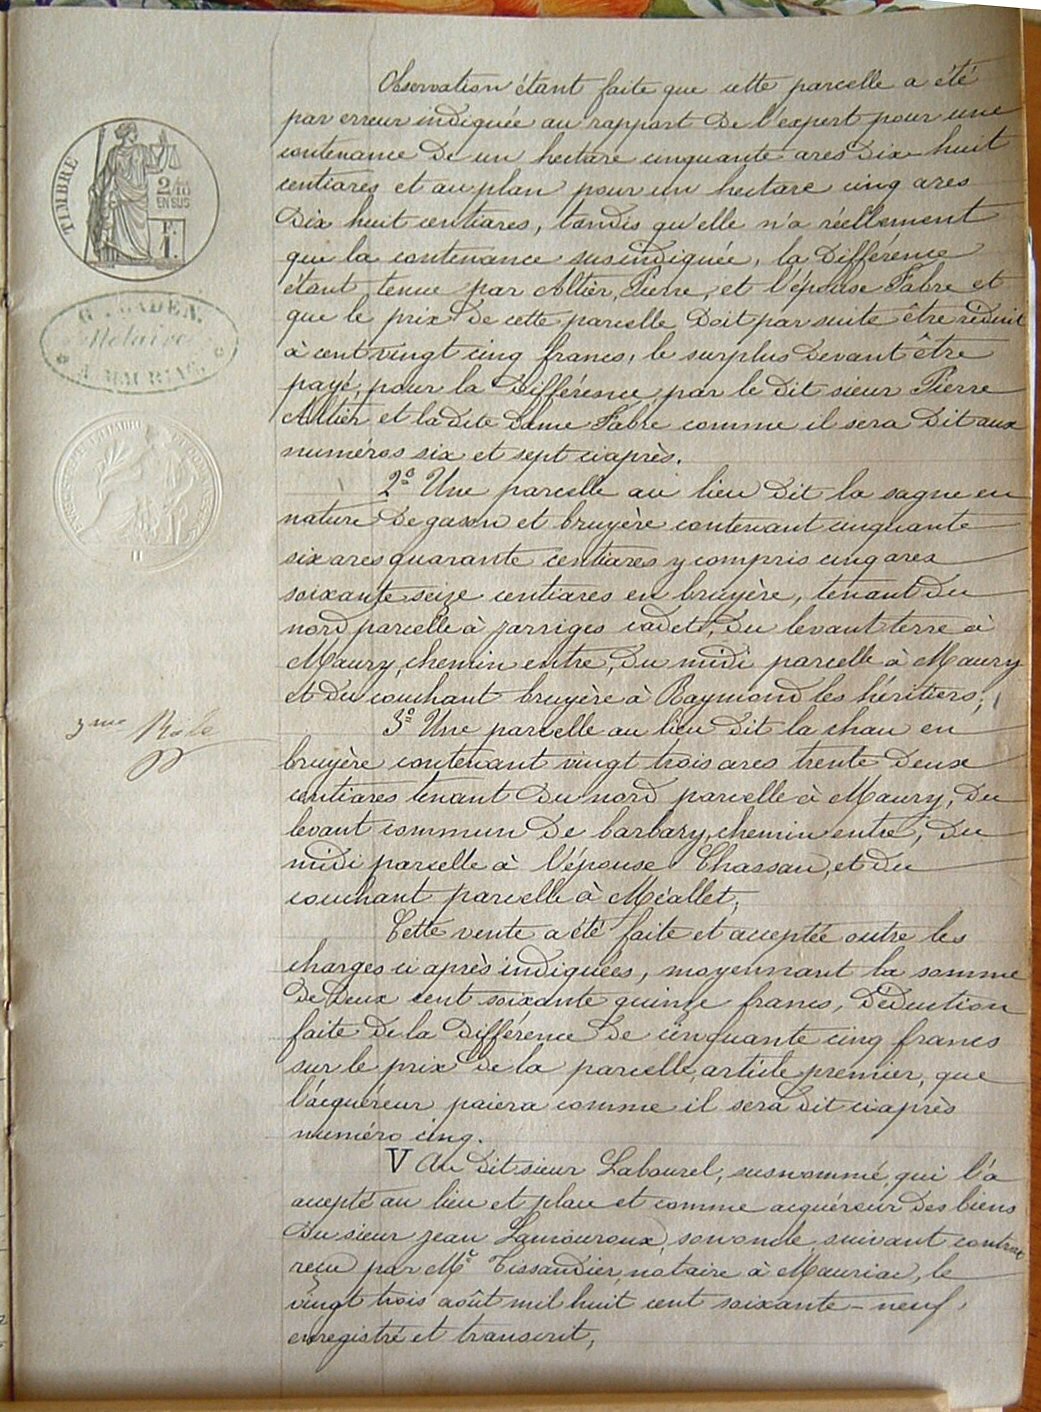 Observation étant faite que cette parcelle a été
par erreur indiquée au rapport de l'expert pour une
contenance de un hectare cinquante ares dix huit
centiares et au plan pour un hectare cinq ares
dix huit centiares, tandis qu'elle n'a réellement
que la contenance susindiquée, la différence
étant tenue par Altier, Pierre, et l'épouse Fabre et
que le prix de cette parcelle doit par suite être réduit
à cent vingt cinq francs, le surplus devant être
payé, pour la différence par le dit sieur Pierre
Altier et ladite dame Fabre comme il sera dit aux
numéros six et sept ciaprès.
2° Une parcelle au lieu dit la sagne en
nature de gason et bruyère contenant cinquante
six ares quarante centiares y compris cinq ares
soixante seize centiares en bruyère, tenant du
nord parcelle à Jarriges cadet, du levant terre à
Maury, chemin entre, du midi parcelle à Maury
et du couchant bruyère à Raymond les héritiers;
3° Une parcelle au lieu dit la chau en
bruyère contenant vingt trois ares trente deux
centiares tenant du nord parcelle à Maury, du
levant commun de barbary, chemin entre, du
midi parcelle à l'épouse Chassan, et du
couchant parcelle à Méallet;
Cette vente a été faite et acceptée outre les
charges ci après indiquées, moyennant la somme
de deux cent soixante quinze francs, déduction
faite de la différence de cinquante cinq francs
sur le prix de la parcelle, article premier, que
l'acquéreur paiera comme il sera dit ciaprès
numéro cinq.
V Au dit sieur Labourel, susnommé, qui l'a
accepté au lieu et place et comme acquéreur des biens
du sieur Jean Lamouroux, son oncle, suivant contrat
reçu par Me Tissandier, notaire à Mauriac, le
vingt trois août mil huit cent soixante-neuf,
enregistré et transcrit;
TIMBRE
2/10
EN SUS
F.
1.
G. GADEN
Notaire
A MAURIAC
3me Rôle